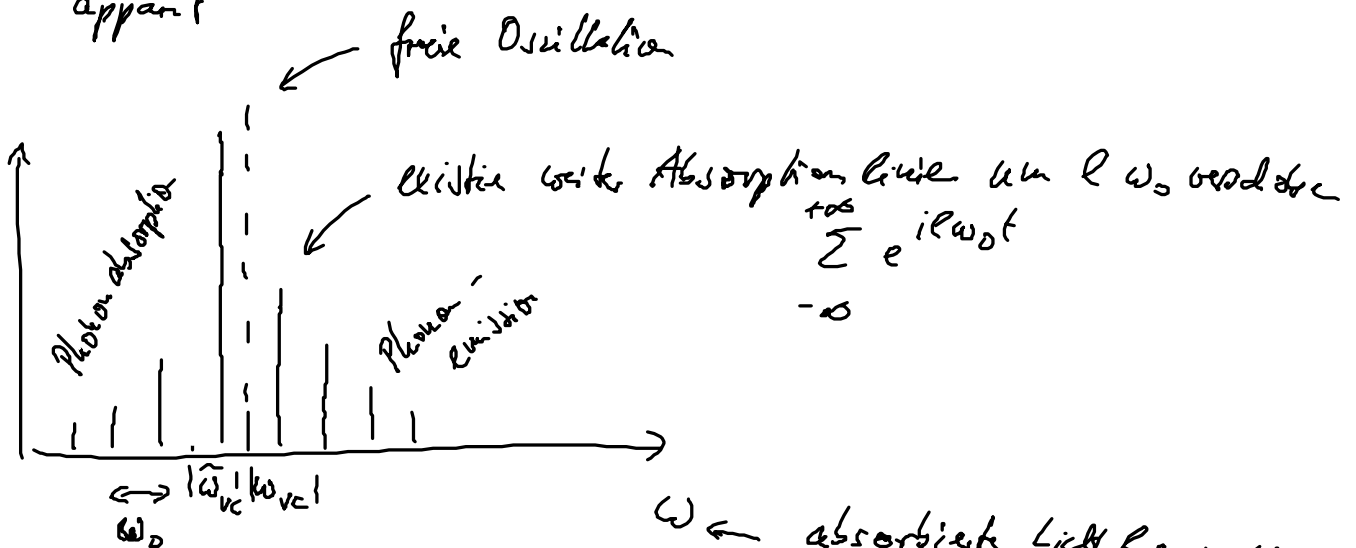 freie Oszillation
existie weite Absorptionslinie um l ω₀ verschobe
+∞
Σ e^{ilω₀t}
-∞
Photon absorption
Phonon-
emission
|ω̃_vc| |ω_vc|
ω₀
ω ← absorbierte Licht